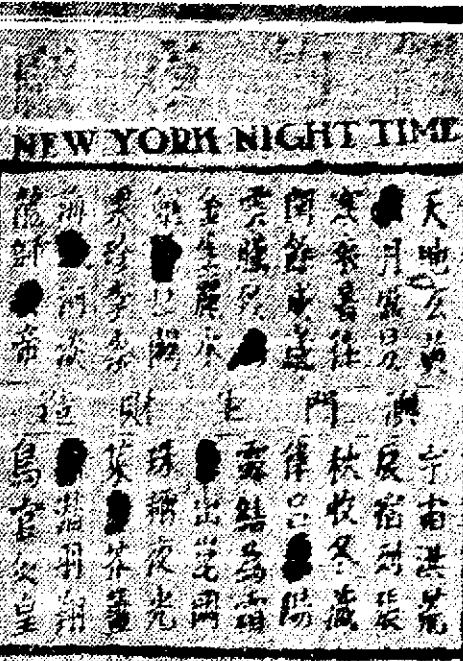 NEW YORK NIGHT TIME
天地玄黃
月盈昃
寒來暑往
閏餘成歲
雲騰致
金生麗水
巨闕
果珍李柰
海河淡
龍師帝
澳門生
宇宙洪荒
辰宿列張
秋收冬藏
律呂陽
露結為霜
出崑岡
珠稱夜光
菜芥薑
潛羽翔
鳥官人皇